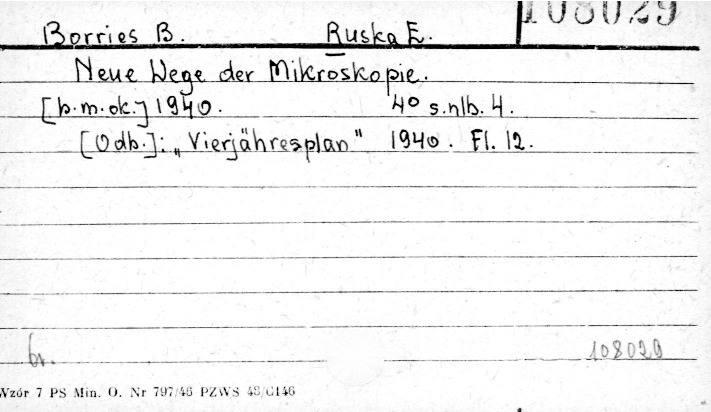 108029
Borries B. Ruska E.
Neue Wege der Mikroskopie.
[b.m.ok.] 1940. 4° s.nlb. 4.
[Odb.]: „Vierjähresplan" 1940. Fl. 12.
br. 108029
Wzór 7 PS Min. O. Nr 797/46 PZWS 48/C146